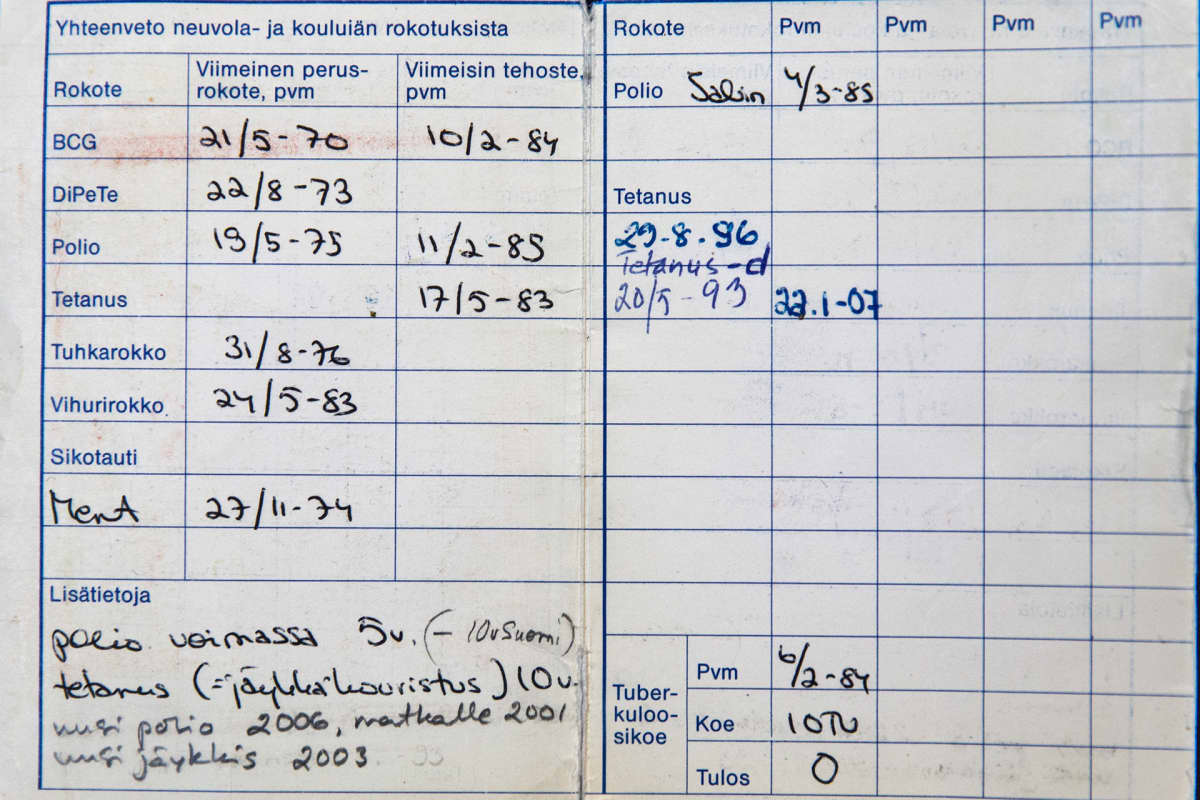 Yhteenveto neuvola- ja kouluiän rokotuksista
Rokote Viimeinen perus-rokote, pvm Viimeisin tehoste, pvm
BCG 21/5-70 10/2-84
DiPeTe 22/8-73
Polio 19/5-75 11/2-85
Tetanus 17/5-83
Tuhkarokko 31/8-76
Vihurirokko 24/5-83
Sikotauti
MenA 27/11-74
Lisätietoja
polio voimassa 5v. (- 10v Suomi)
tetanus (="jäykkä"kouristus) 10v.
uusi polio 2006, matkalle 2001
uusi jäykkis 2003
Rokote Pvm Pvm Pvm Pvm
Polio Sabin 4/3-85
Tetanus
29.8.96
Tetanus-d
20/5-93 22.1-07
Tuber-kuloo-sikoe
Pvm 6/2-84
Koe 10TU
Tulos 0